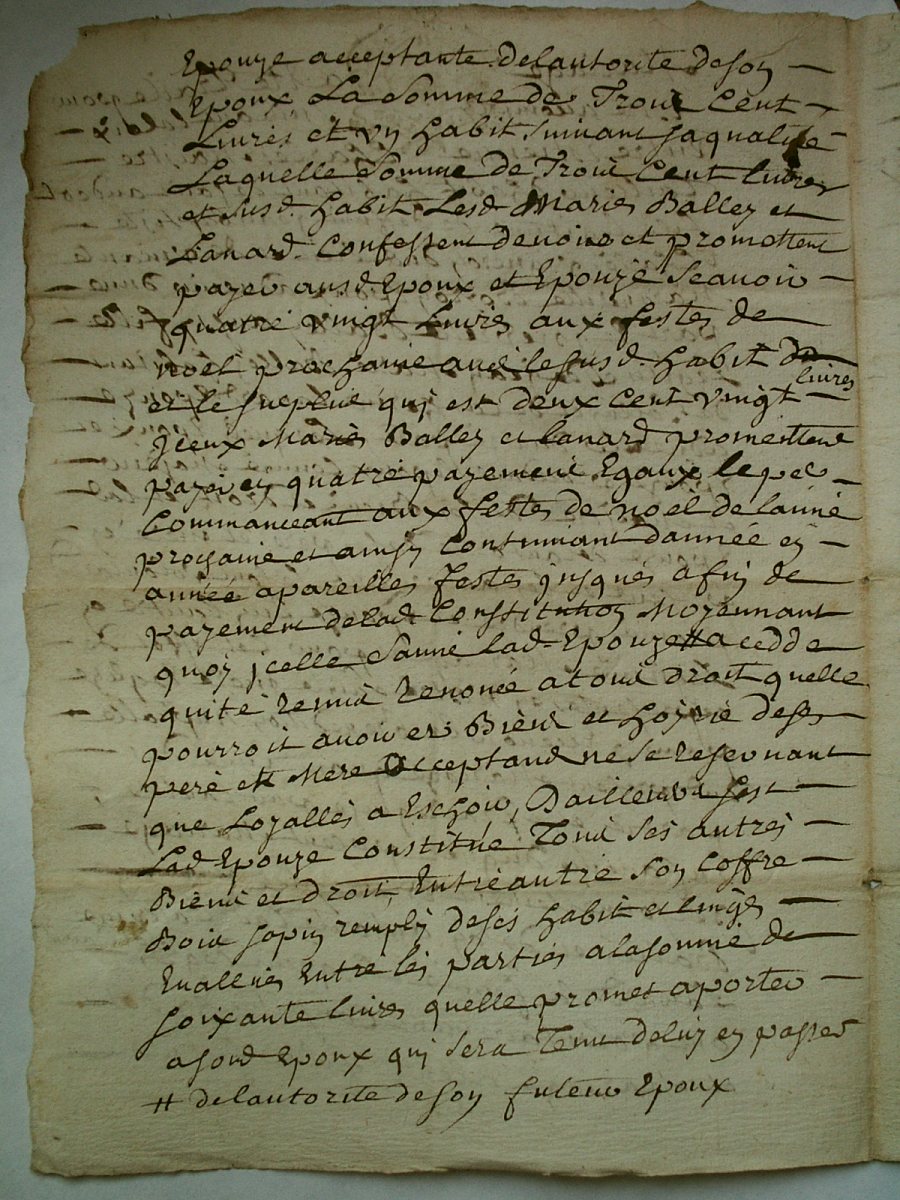 Epouze acceptante delautorite deson —
Epoux La Somme de Trois Cent —
Livres et un habit suivant saqualité
Laquelle Somme de Trois Cent livres
et susd. habit Lesd Maries Balley et
Lanard Confessent devoir et promettent
payer ausd Epoux et Epouze Scavoir —
quatre vingt Livres aux festes de
noel prochaine avec le susd. habit
et le surplus qui est deux Cent vingt livres
Jceux Maries Balley et lanard promettent
payer en quatre payement Egaux le per —
Commanceant aux festes de noel de lanné
prochaine et ainsy Continuant dannée en —
année apareilles festes jusques a fin de
payement delad. Constitution Moyennant
quoy jcelle lad Epouze # a cedde
quité remis renoncé atous droit quelle
pourroit avoir es Biens et hoyrie deses
peré et Mere acceptand ne se reservant
que Loyalles a Eschoir, Dailleurs sest —
Lad Epouze Constitué Tous ses autres —
Biens et droit, Entre autre son coffre —
Bois sapin remply deses habit et linges —
Evallués Entre les parties alasomme de
soixante livres quelle promet aporter —
asond Epoux qui sera Tenu deluy en passer
# delautorite deson futeur Epoux